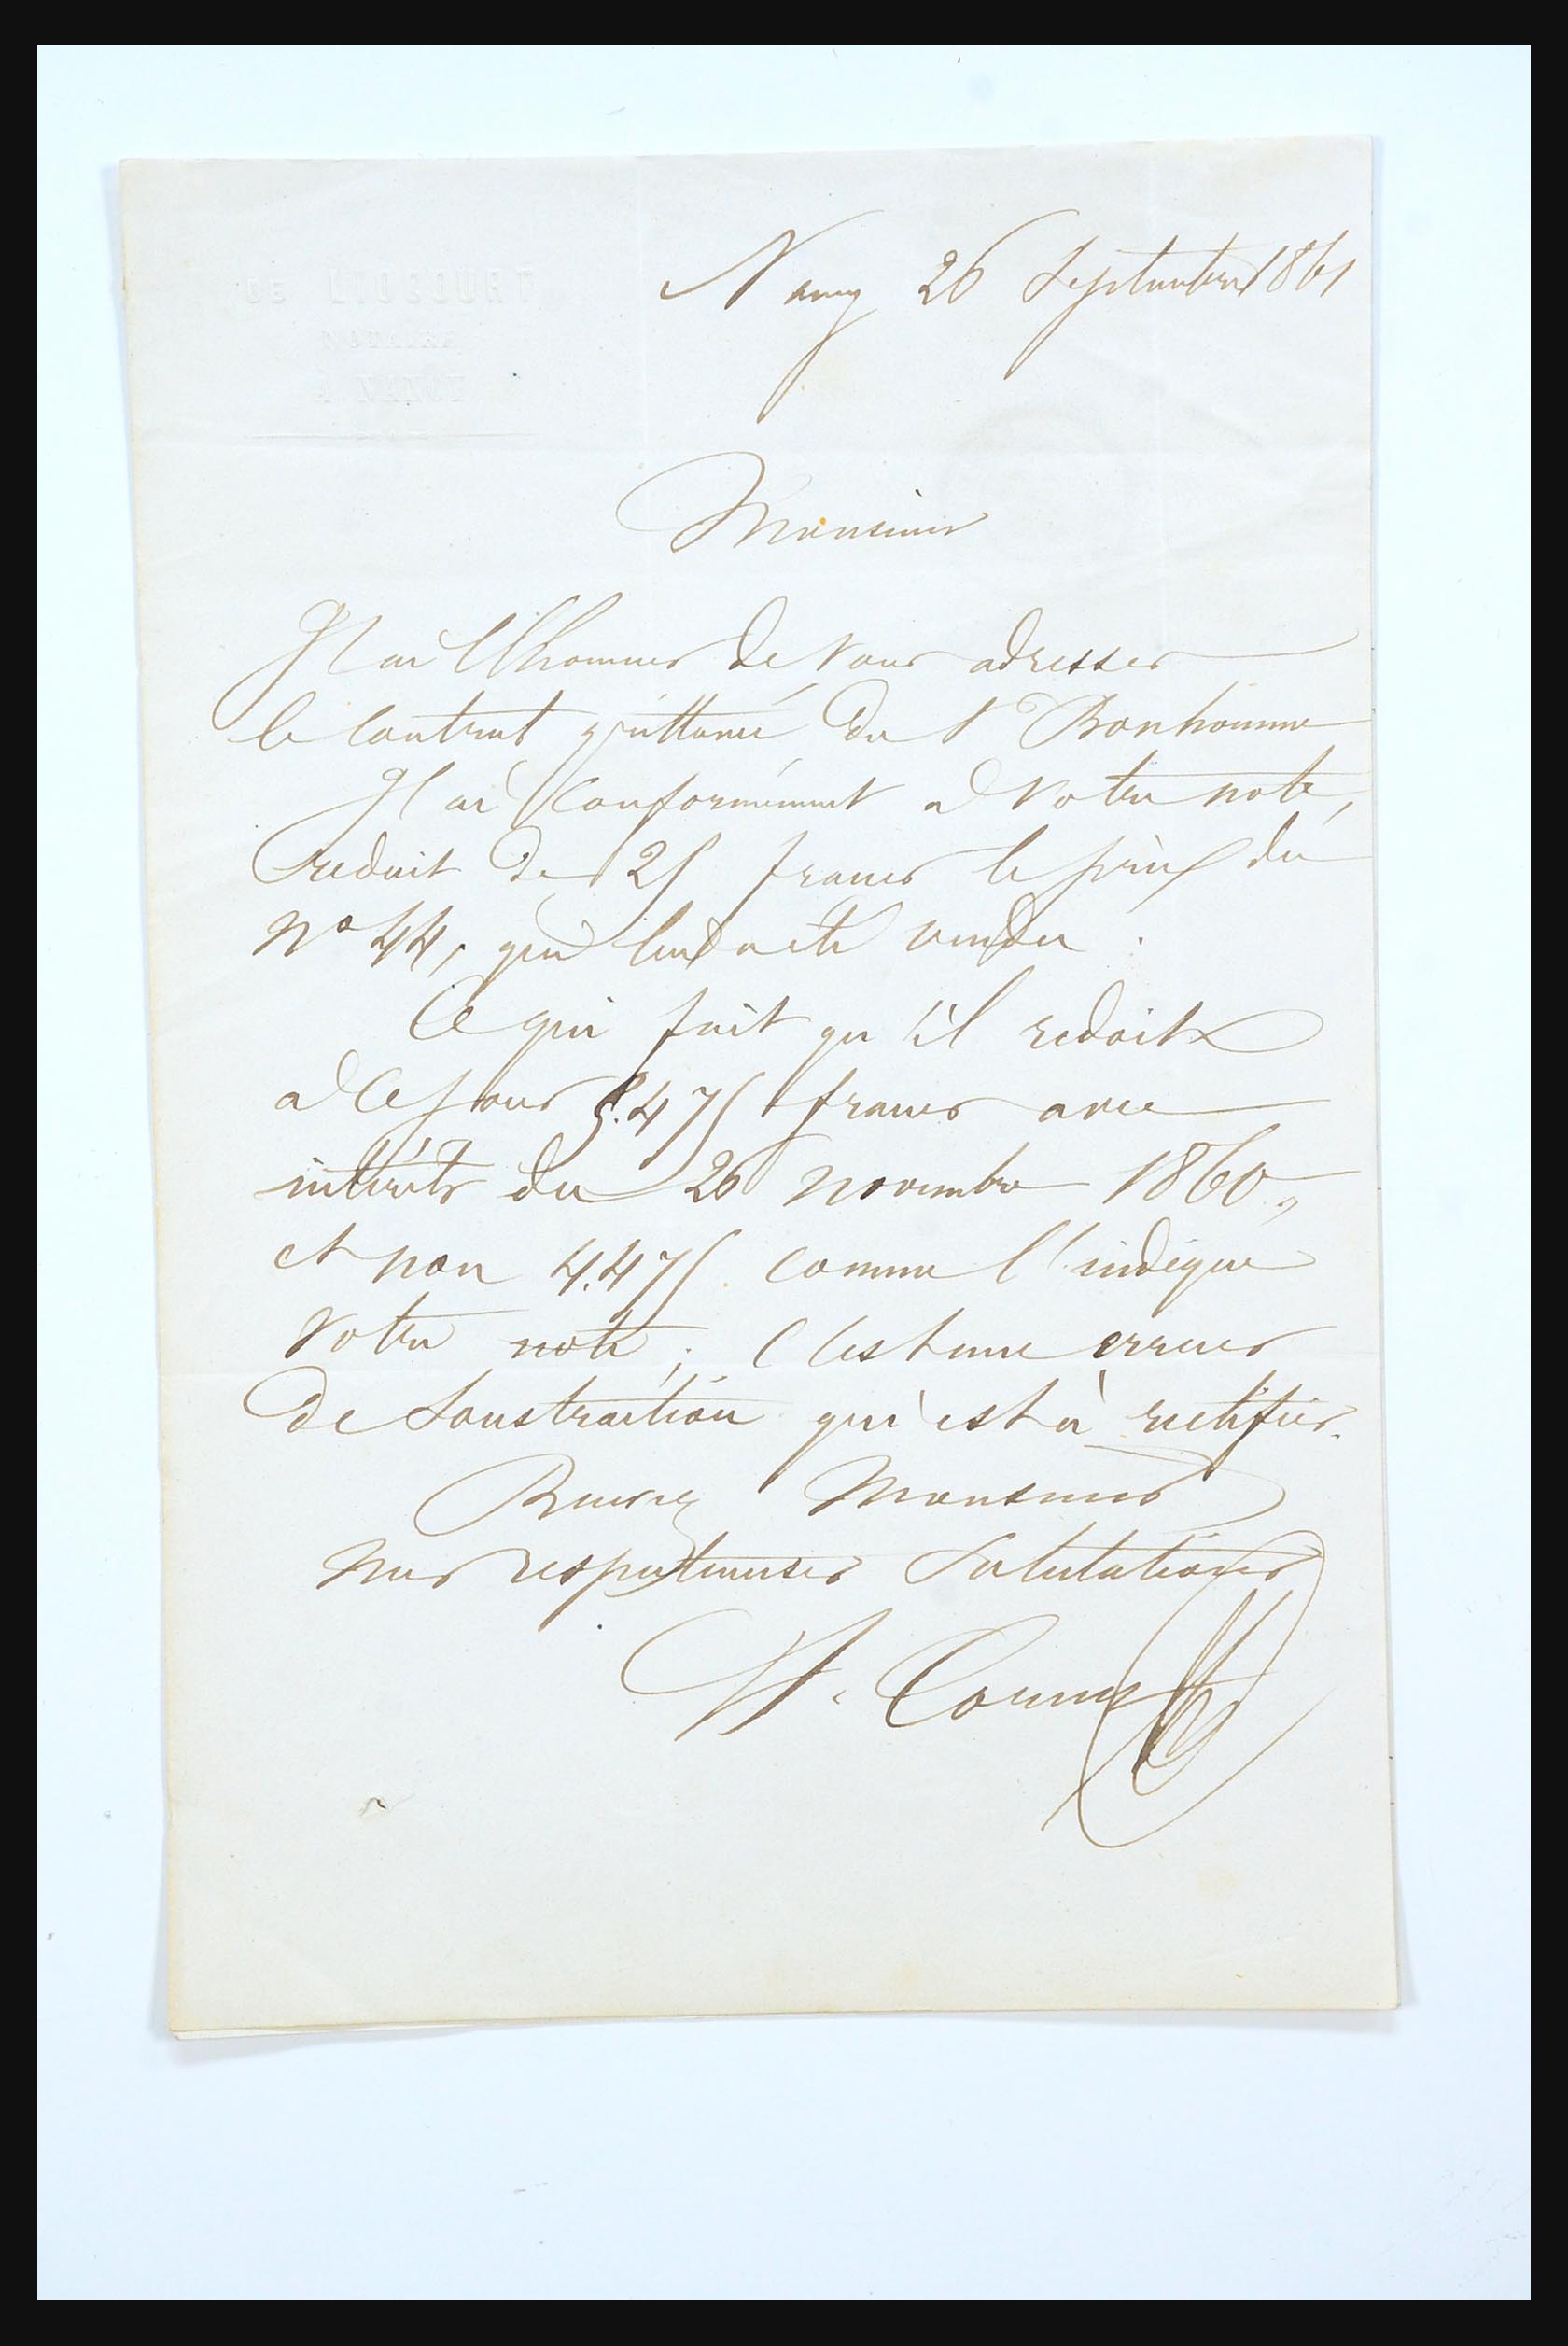 DE LIOCOURT
NOTAIRE
A NANCY
Nancy 26 Septembre 1861
Monsieur
J'ai l'honneur de vous adresser
le contrat quittancé du Sr Bonhomme
J'ai conformément a votre note,
reduit de 25 francs le prix du
No 44, qui lui a été vendu.
Ce qui fait qu'il redoit
a ce jour 3.475 francs avec
intérêts du 26 novembre 1860,
et non 4.475 comme l'indique
votre note; c'est une erreur
de soustraction qui est à rectifier.
Recevez Monsieur
mes respectueuses salutations